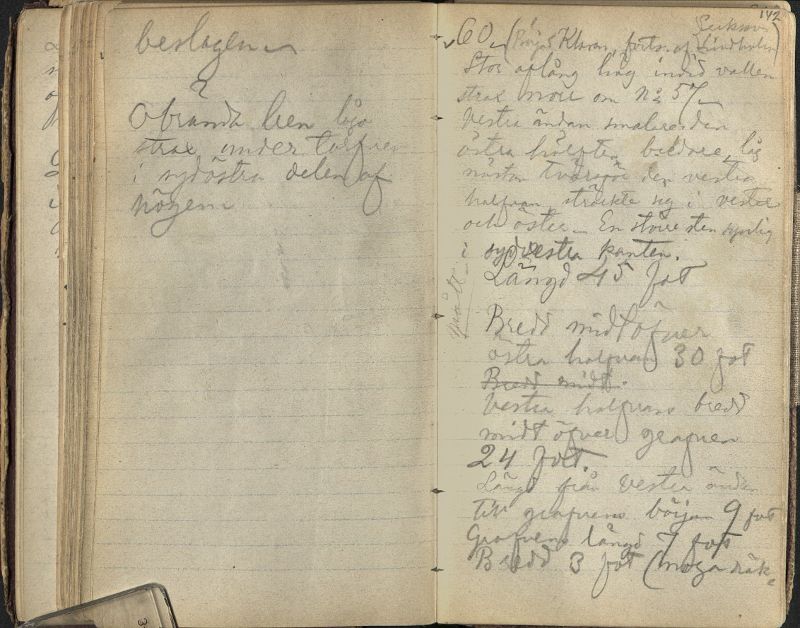 beslagen
Obrända ben låga
strax under torfven
i sydöstra delen af
högen
142
60. (Börjad Klaran, forts. af Lindholm)
Stor aflång hög invid vallen
strax norr om No 57
Vestra ändan smalare den
östra hälften bredare, låg
nästan tvärsför den vestra
halfvan, sträckte sig i vester
och öster. En större sten synlig
i sydvestra kanten.
mått
Längd 45 fot
Bredd midtöfver
östra halfvan 30 fot
Bredd midt
Vestra halfvans bredd
midt öfver grafven
24 fot.
Längd från vestra ändan
till grafvens början 9 fot
Grafvens längd 7 fot
Bredd 3 fot (noga räk